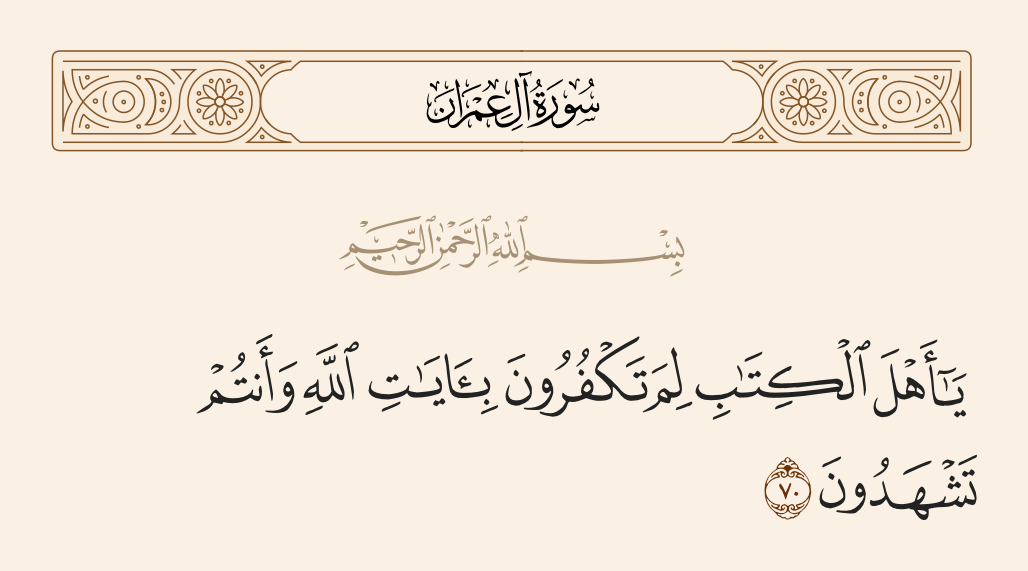 سُورَةُ آلِ عِمْرَان
بِسْمِ ٱللَّهِ ٱلرَّحْمَٰنِ ٱلرَّحِيمِ
يَٰٓأَهْلَ ٱلْكِتَٰبِ لِمَ تَكْفُرُونَ بِـَٔايَٰتِ ٱللَّهِ وَأَنتُمْ
تَشْهَدُونَ ٧٠